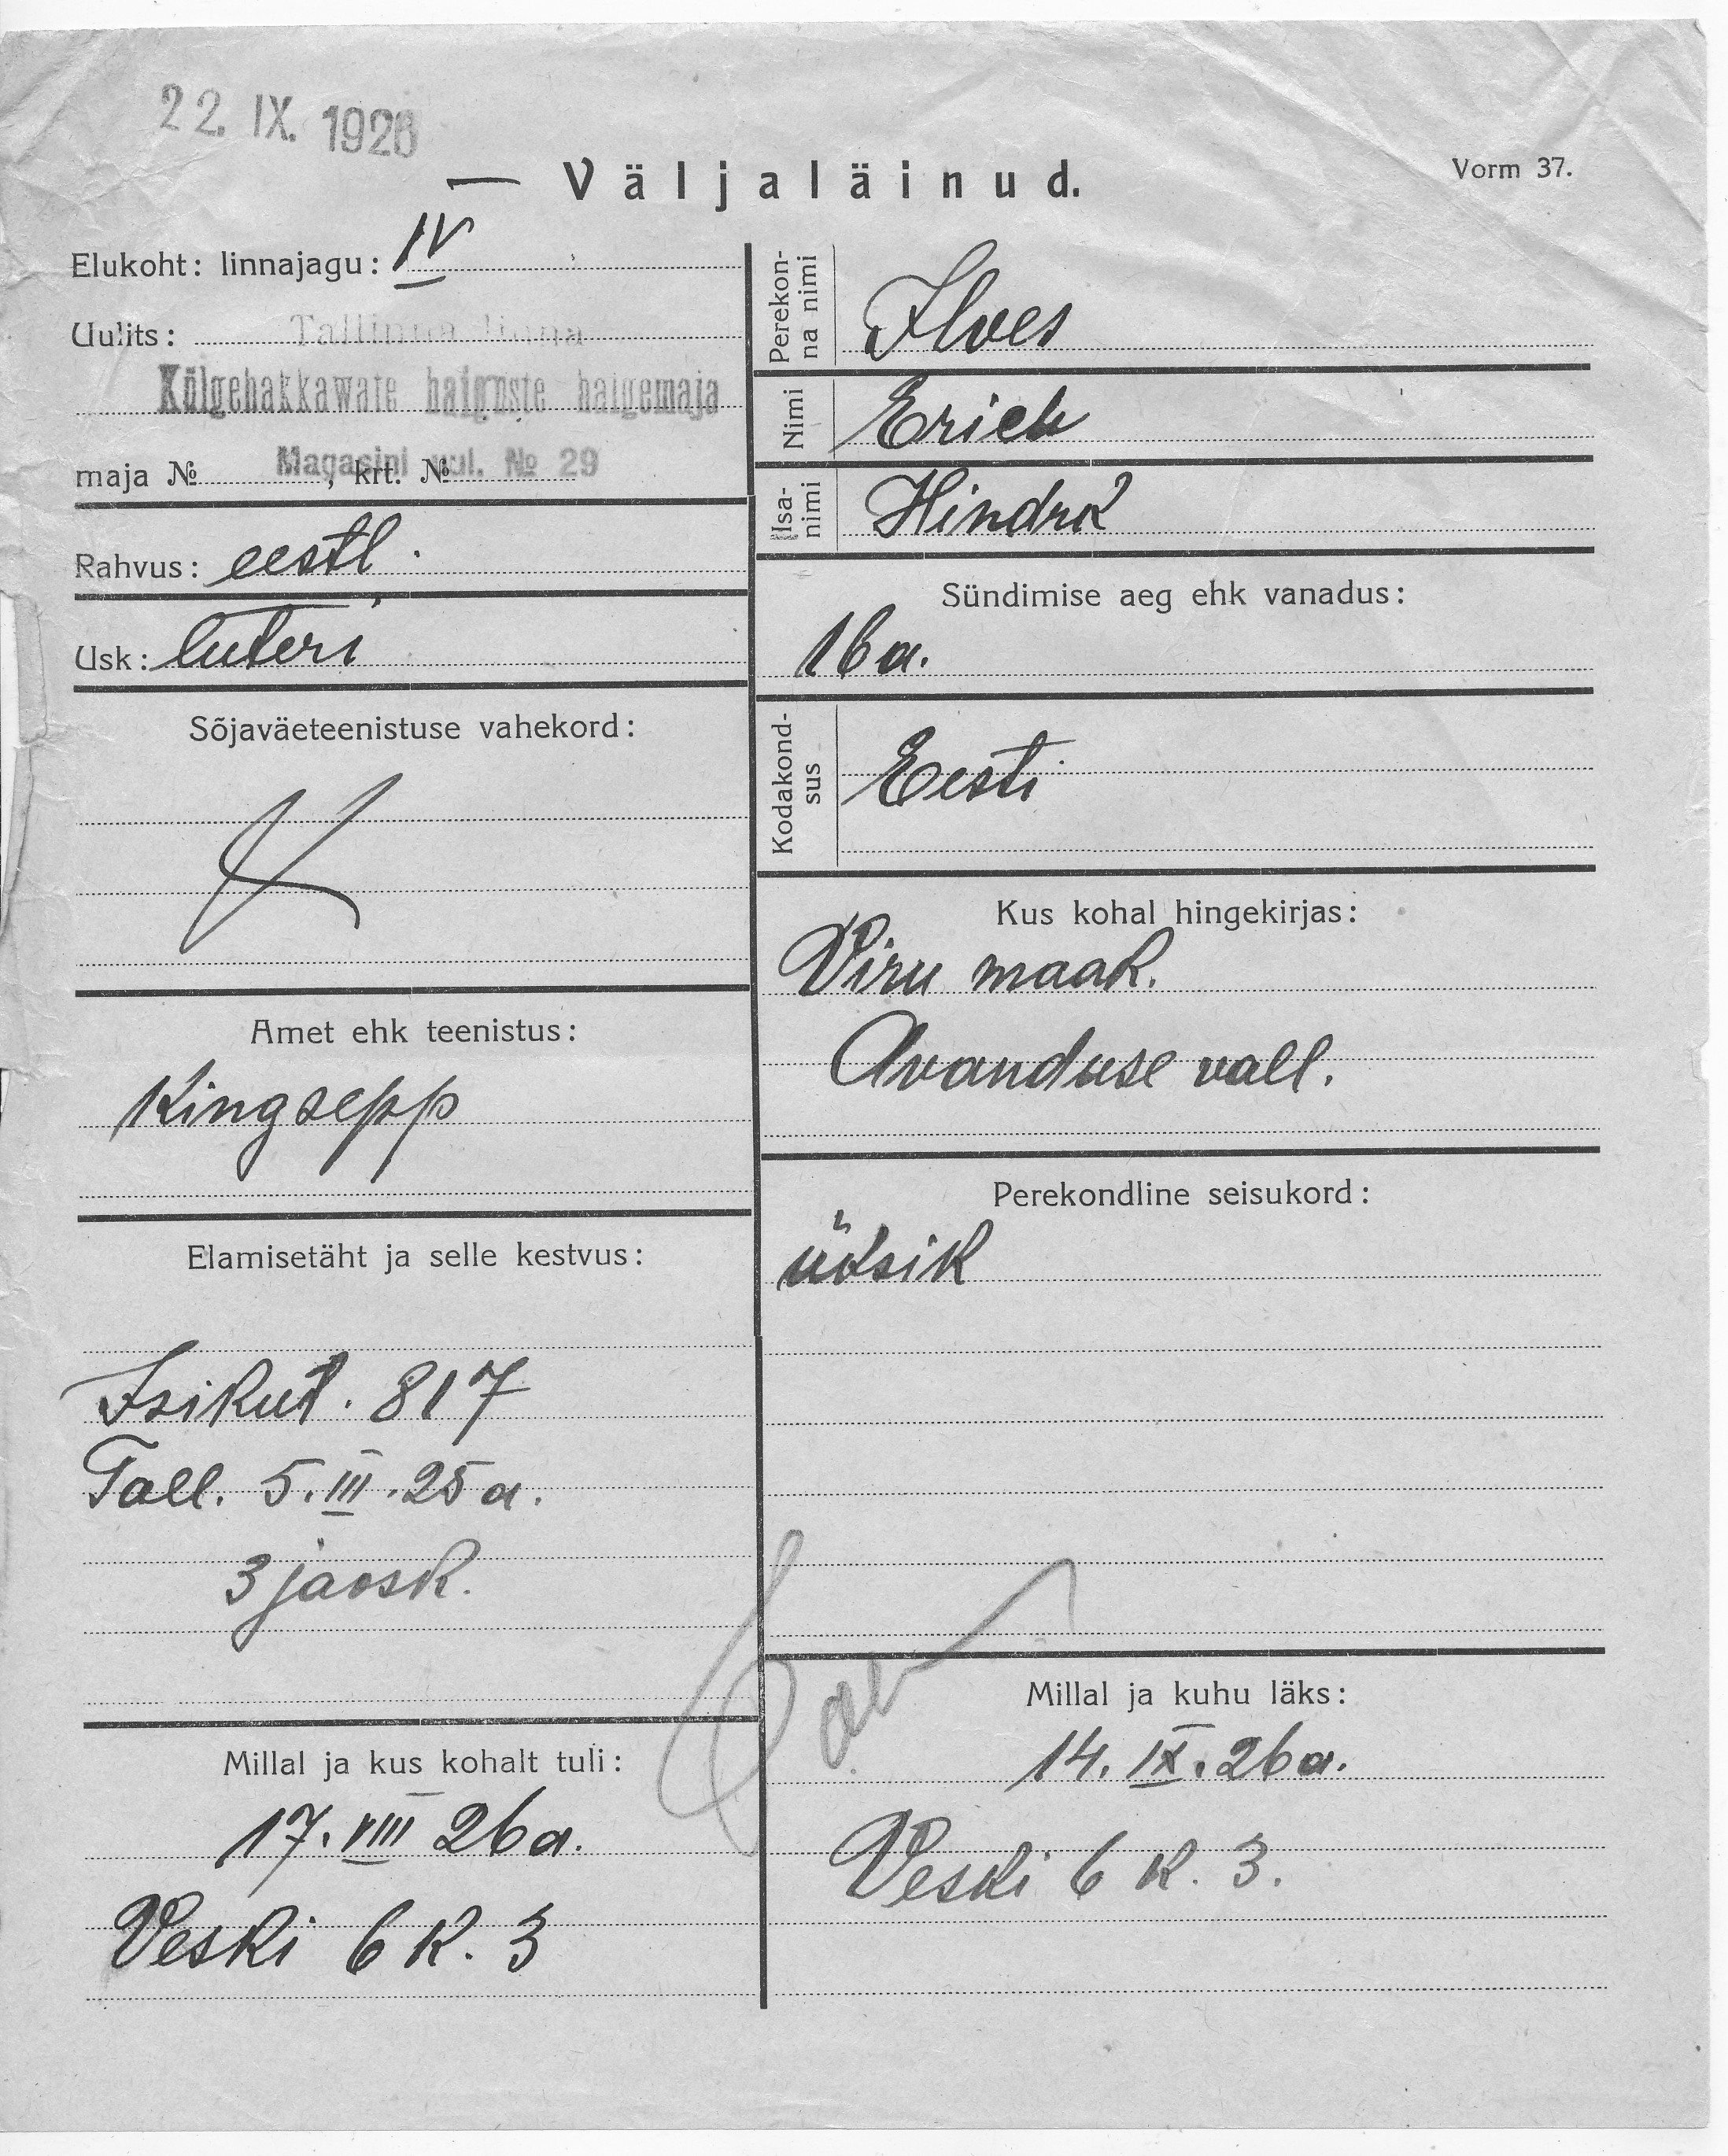 22. IX. 1926
Väljaläinud.
Vorm 37.
Elukoht: linnajagu: IV
Uulits: Tallinna linna
Külgehakkawate haiguste haigemaja
maja № , krt. №
Magasini uul. № 29
Rahvus: eestl.
Usk: luteri
Sõjaväeteenistuse vahekord:
Amet ehk teenistus:
Kingsepp
Elamisetäht ja selle kestvus:
Isikut. 817
Tall. 5.III.25a.
3 jaosk.
Millal ja kus kohalt tuli:
17. VIII 26a.
Veski 6 k. 3
Perekon-
na nimi
Ilves
Nimi
Erich
Isa-
nimi
Hindrik
Sündimise aeg ehk vanadus:
16a.
Kodakond-
sus
Eesti
Kus kohal hingekirjas:
Viru maak.
Avanduse vall.
Perekondline seisukord:
üksik
Millal ja kuhu läks:
14. IX. 26a.
Veski 6 k. 3.